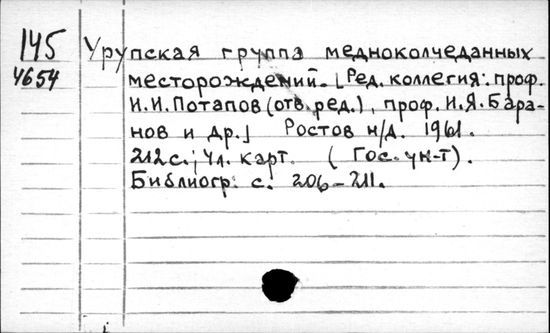 145
4654
Урупская группа медноколчеданных
месторождений. [Ред. коллегия: проф.
И.И. Потапов (отв. ред.), проф. И.Я. Бара-
нов и др.] Ростов н/Д. 1961.
212 с.; 4 л. карт. (Гос. ун-т).
Библиогр. с. 206-211.